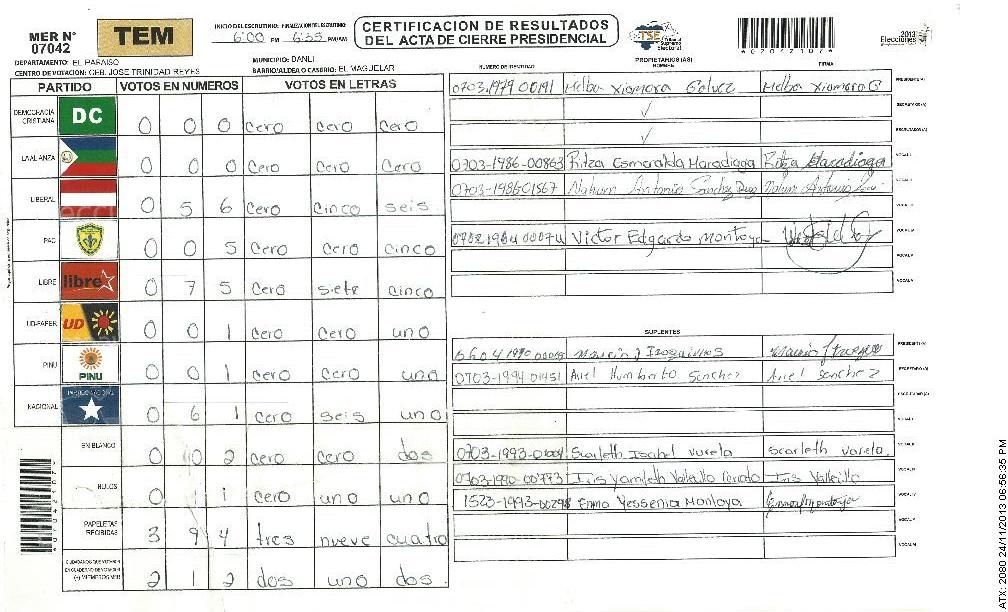 MER N° 07042
TEM
INICIO DEL ESCRUTINIO: 6:00 PM FINALIZACION DEL ESCRUTINIO: 6:35 PM/AM
CERTIFICACION DE RESULTADOS
DEL ACTA DE CIERRE PRESIDENCIAL
TSE Tribunal Supremo Electoral
2013 Elecciones
DEPARTAMENTO: EL PARAISO
MUNICIPIO: DANLI
CENTRO DE VOTACION: CEB. JOSE TRINIDAD REYES
BARRIO/ALDEA O CASERIO: EL MAGUELAR
PARTIDO VOTOS EN NUMEROS VOTOS EN LETRAS
DEMOCRACIA CRISTIANA DC 0 0 0 Cero Cero Cero
LA ALIANZA 0 0 0 Cero Cero Cero
LIBERAL 0 5 6 Cero Cinco seis
PAC 0 0 5 Cero Cero Cinco
LIBRE libre 0 7 5 Cero siete cinco
UD-FAPER UD 0 0 1 Cero Cero uno
PINU PINU 0 0 1 Cero Cero uno
NACIONAL PARTIDO NACIONAL 0 6 1 Cero seis uno
EN BLANCO 0 0 2 Cero Cero dos
NULOS 0 1 1 Cero uno uno
PAPELETAS RECIBIDAS 3 9 4 tres nueve cuatro
CIUDADANOS QUE VOTARON EN CUADERNO DE VOTACION (+) MIEMBROS MER 2 1 2 dos uno dos
PROPIETARIOS (AS)
NUMERO DE IDENTIDAD NOMBRE FIRMA
0703-1979 00191 Melba Xiomara Galvez Melba Xiomara G PRESIDENTE(A)
SECRETARIO (A)
ESCRUTADOR (A)
0703-1986-00863 Ritza Esmeralda Maradiaga Ritza Maradiaga VOCAL I
0703-198601567 Nahum Antonio Sanchez Nahum Antonio
Victor Edgardo Montoya
SUPLENTES
PRESIDENTE(A)
0703-1994 01451 Ariel Humberto Sanchez Ariel Sanchez SECRETARIO (A)
ESCRUTADOR (A)
VOCAL I
0703-1993 Scarleth Isabel Varela Scarleth Varela.
0703-1990-00773 Iris Yamileth Vallecillo Iris Vallecillo
1523-1993-00298 Enma Yessenia Montoya
ATX: 2080 24/11/2013 06:56:35 PM